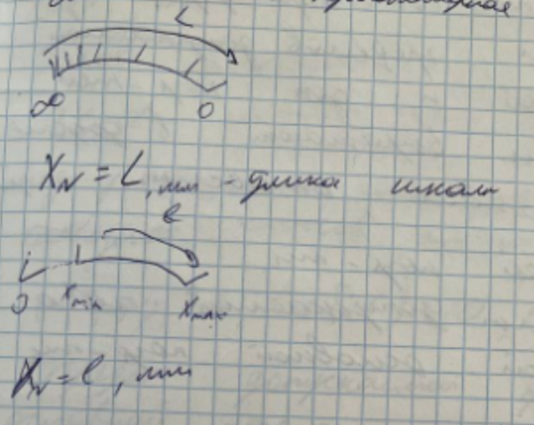 L
∞ 0
X_N = L, мм - длина шкалы
l
0 X_min X_max
X_N = l, мм